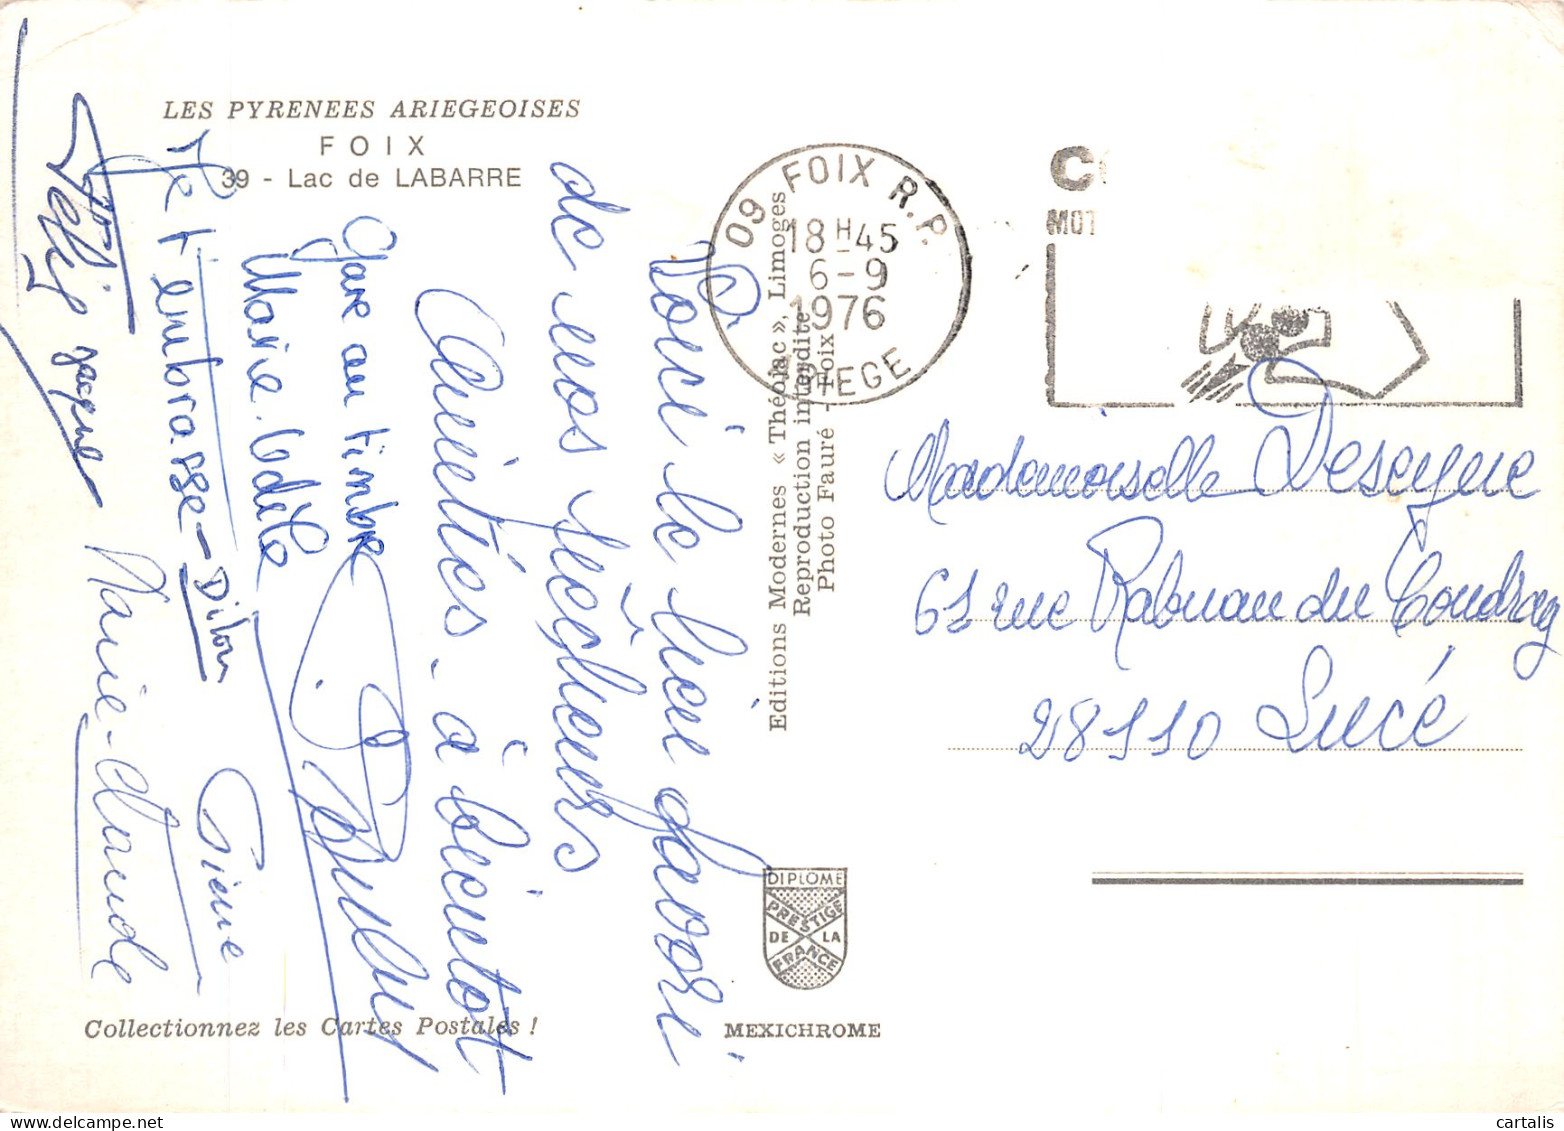 LES PYRENEES ARIEGEOISES
FOIX
39 - Lac de LABARRE
Voici le lieu favori
de nos pêcheurs
Amitiés - à bientot
Gare au timbre
Marie-Odile
Je t'embrasse - Ditou
Pierre
Marie-Claude
Jacques
Collectionnez les Cartes Postales !
Editions Modernes « Théojac », Limoges
Reproduction interdite
Photo Fauré - Foix
DIPLOME
PRESTIGE
DE LA
FRANCE
MEXICHROME
09 FOIX R.P.
18H45
6-9
1976
ARIEGE
C
MOT
Mademoiselle Deseyne
61 rue Rabuan du Coudray
28110 Lucé
cartalis